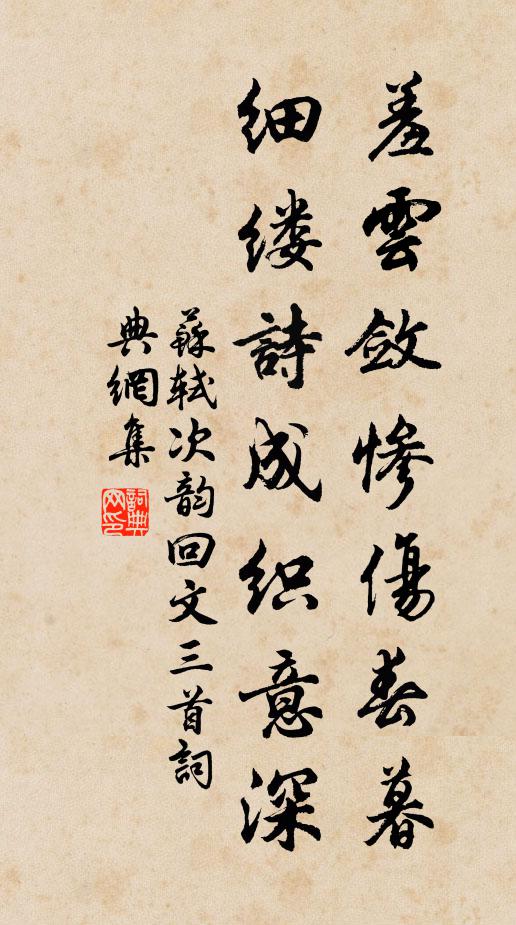 羞雲斂慘傷春暮
细缕詩成织意深
蘇軾次韵回文三首詞
典網集
詞典网印